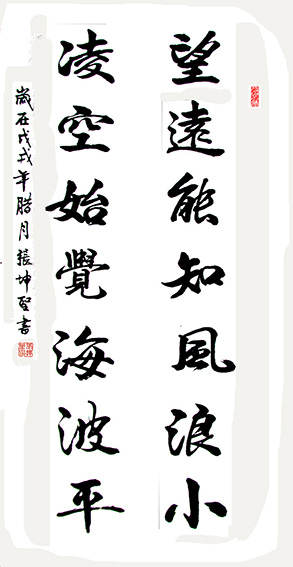 望遠能知風浪小
凌空始覺海波平
歲在戊戌年腊月張坤聖書